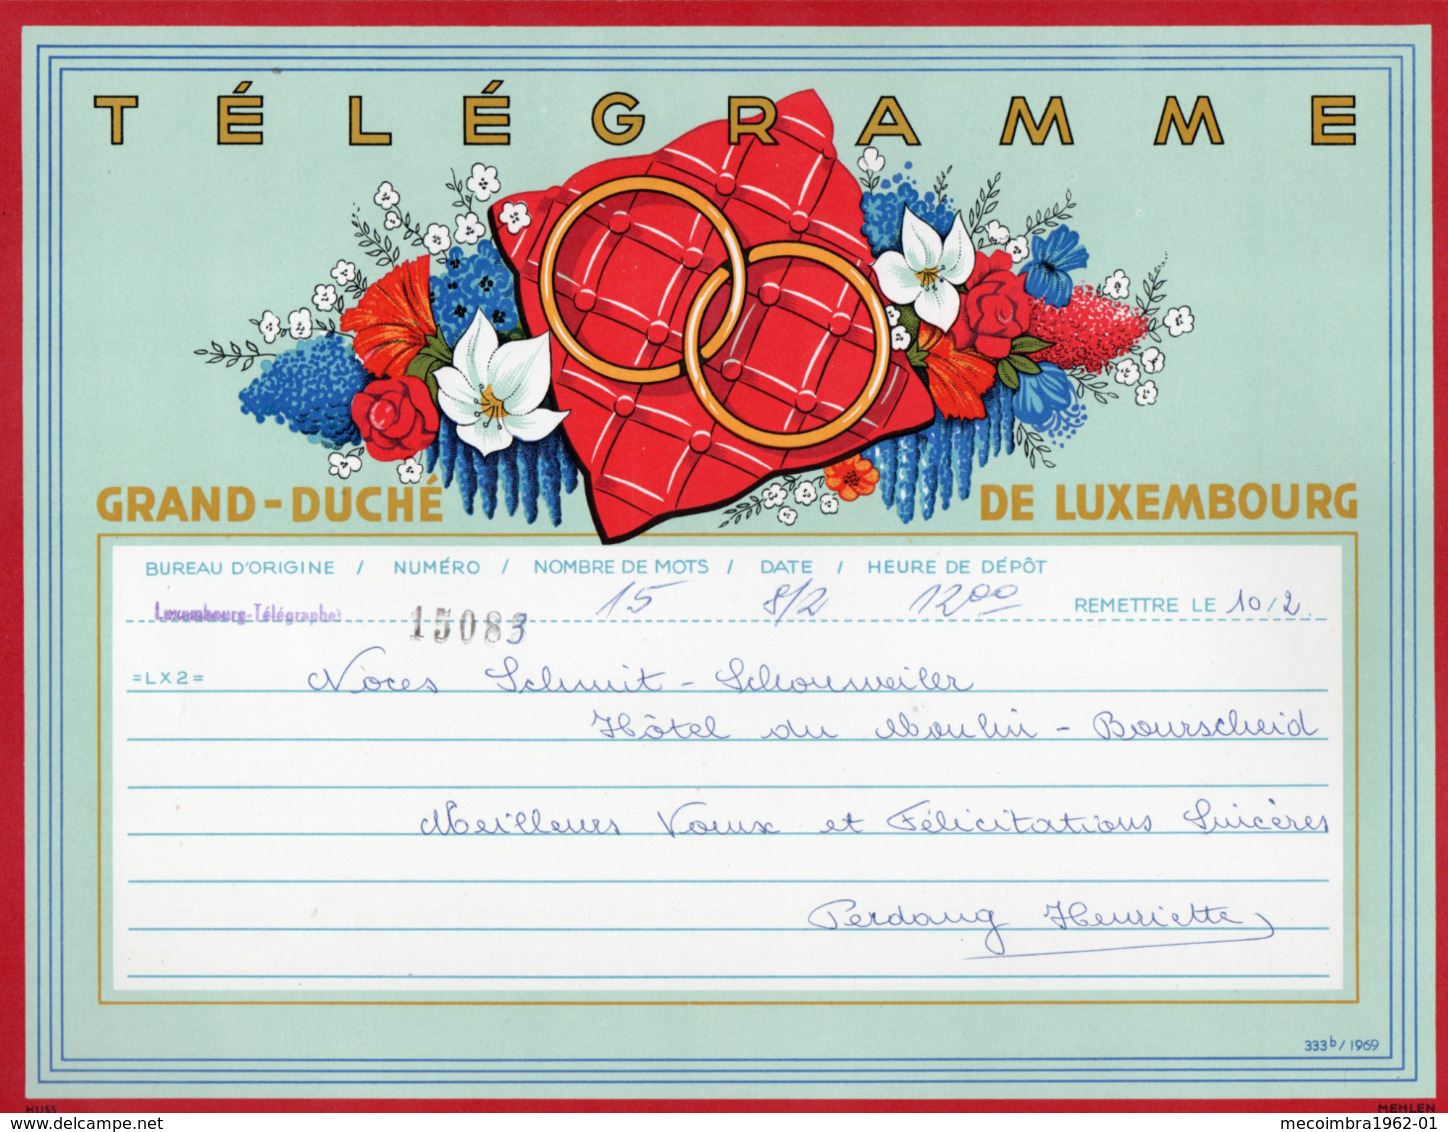 TÉLÉGRAMME
GRAND-DUCHÉ DE LUXEMBOURG
BUREAU D'ORIGINE / NUMÉRO / NOMBRE DE MOTS / DATE / HEURE DE DÉPÔT
Luxembourg-Télégraphes 15083 15 8/2 12 00 REMETTRE LE 10/2.
=LX2= Noces Schmit - Schouweiler
Hôtel du Moulin - Bourscheid
Meilleurs Voeux et Félicitations Sincères
Perdang Henriette
333b/1969
HUSS MEHLEN
delcampe.net mecoimbra1962-01